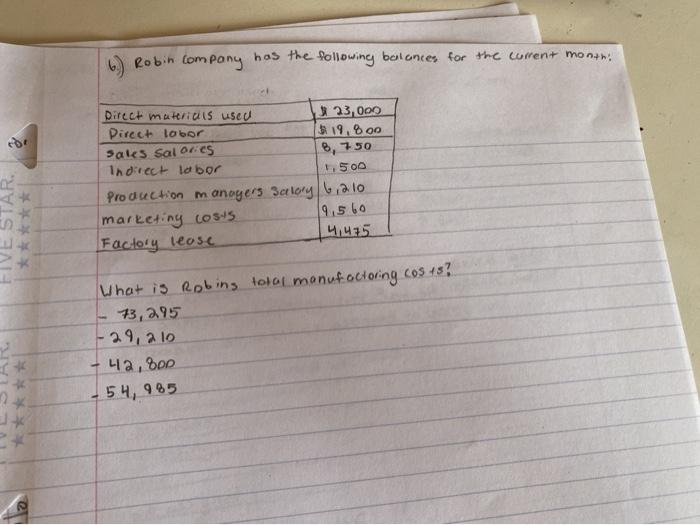 6.) Robin Company has the following balances for the current month:
Direct materials used $ 23,000
Direct labor $ 19,800
Sales Salaries 8,750
Indirect labor 1,500
Production managers Salary 6,210
marketing costs 9,560
Factory lease 4,475
What is Robins total manufactoring costs?
- 73,295
- 29,210
- 42,800
- 54,985
FIVE STAR
FIVE STAR